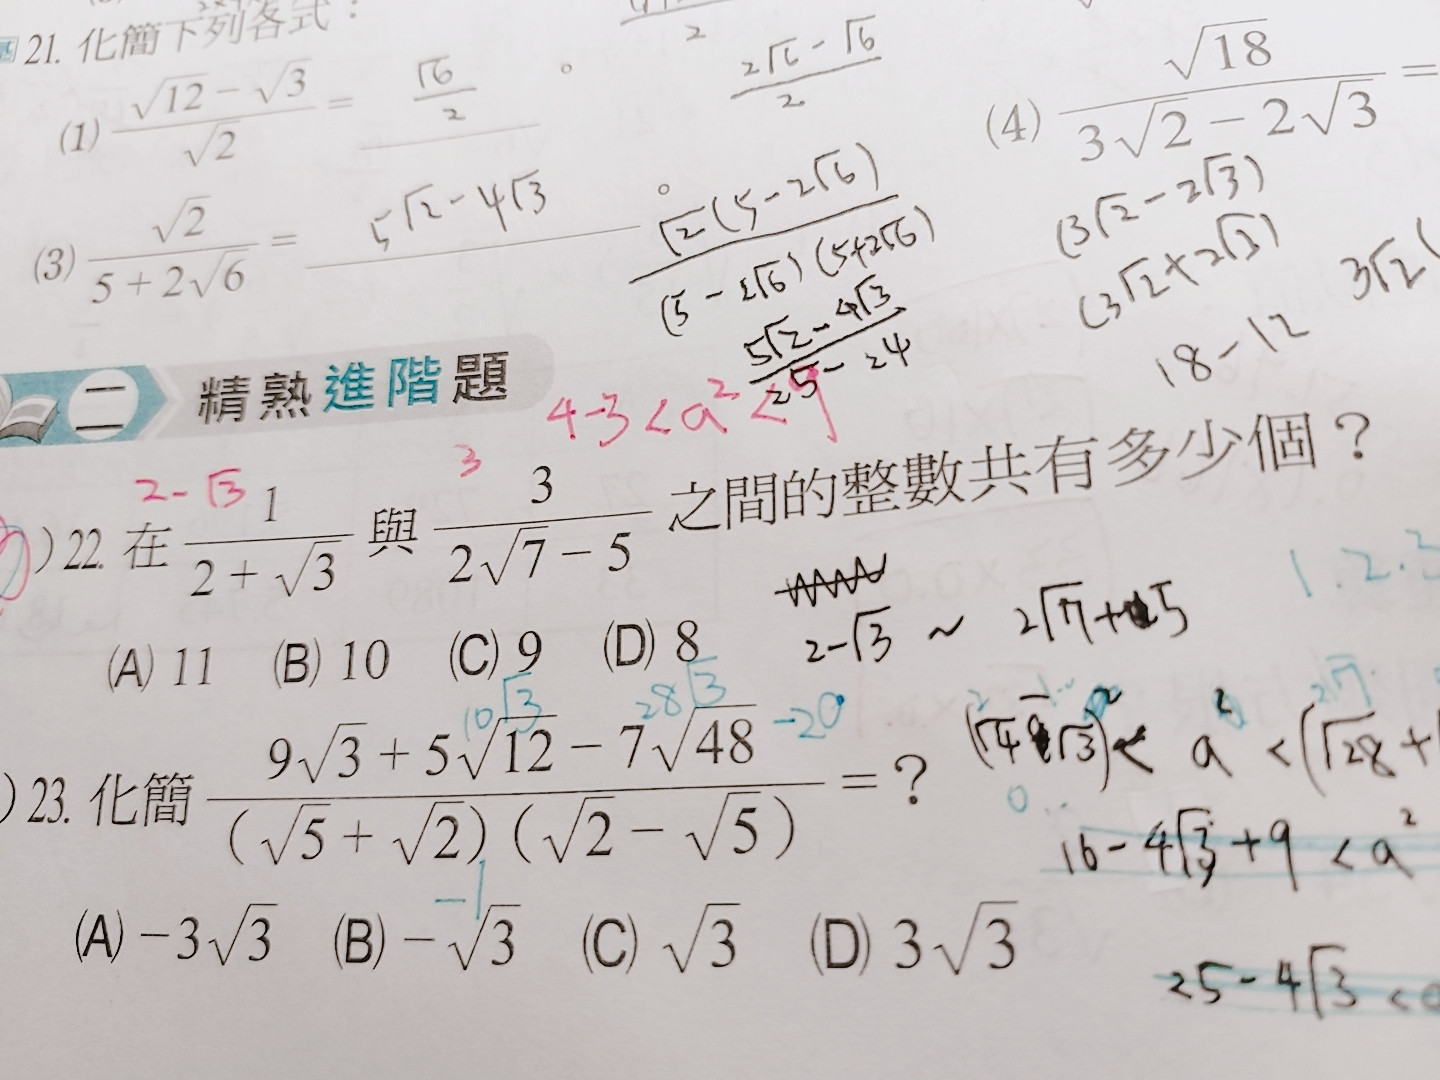 21. 化簡下列各式：
(1) (√12 − √3)/√2 = √6/2 。
(2√6 − √6)/2
(4) √18/(3√2 − 2√3) =
(3) √2/(5 + 2√6) = 5√2 - 4√3 。
√2(5 - 2√6)/((5 - 2√6)(5 + 2√6))
(5√2 - 4√3)/(25 - 24)
(3√2 - 2√3)
(3√2 + 2√3)
18 - 12
3√2(
二 精熟進階題
4-3 < a² < 9
2-√3
3
) 22. 在 1/(2 + √3) 與 3/(2√7 − 5) 之間的整數共有多少個？
1.2.3
(A) 11 (B) 10 (C) 9 (D) 8
2-√3 ~ 2√7+5
10√3 28√3 -20
) 23. 化簡 (9√3 + 5√12 − 7√48)/((√5 + √2)(√2 − √5)) = ？
-1
2√7
< a² < (√28 +
16 - 4√3 + 9 < a²
(A) −3√3 (B) −√3 (C) √3 (D) 3√3
25 - 4√3 <